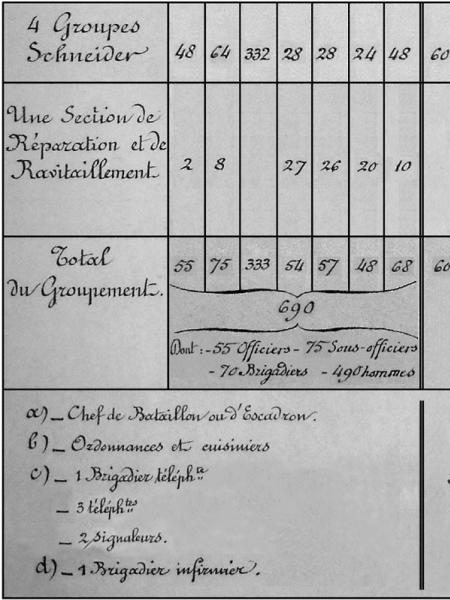 4 Groupes
Schneider 48 64 332 28 28 24 48 60
Une Section de
Réparation et de
Ravitaillement 2 8 27 26 20 10
Total 55 75 333 54 57 48 68 60
du Groupement.
690
Dont :- 55 Officiers - 75 Sous-officiers
- 70 Brigadiers - 490 hommes
a) _ Chef de Bataillon ou d'Escadron.
b) _ Ordonnances et cuisiniers
c) _ 1 Brigadier téléph.te
_ 3 téléph.tes
_ 2 signaleurs.
d) _ 1 Brigadier infirmier.